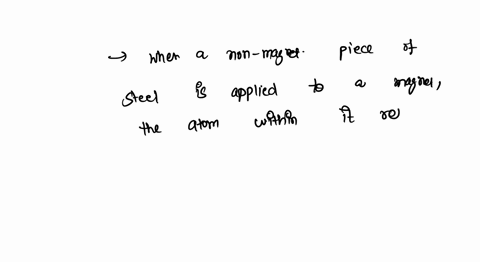 → when a non-magnet piece of
steel is applied to a magnet,
the atom within it re